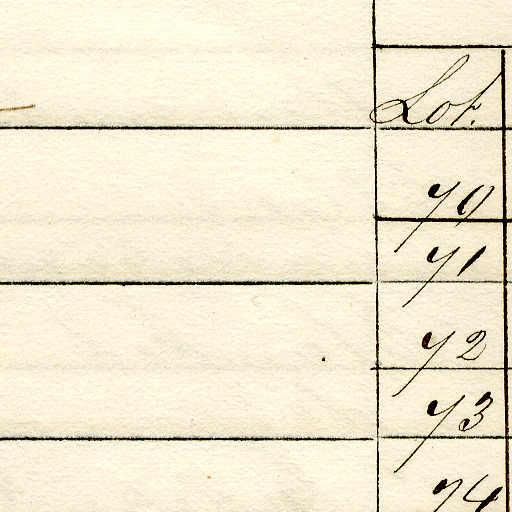 Lot.
70
71
72
73
74